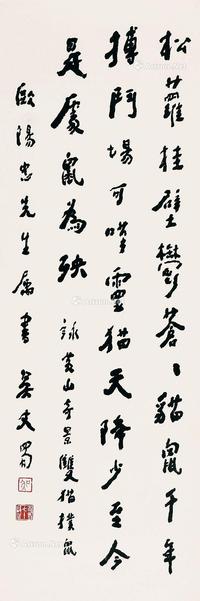 松蘿挂壁鬱蒼蒼貓鼠千年
搏鬥場可嘆靈猫天降少至今
是處鼠為殃
詠黃山奇景雙猫撲鼠
歐陽忠先生屬書